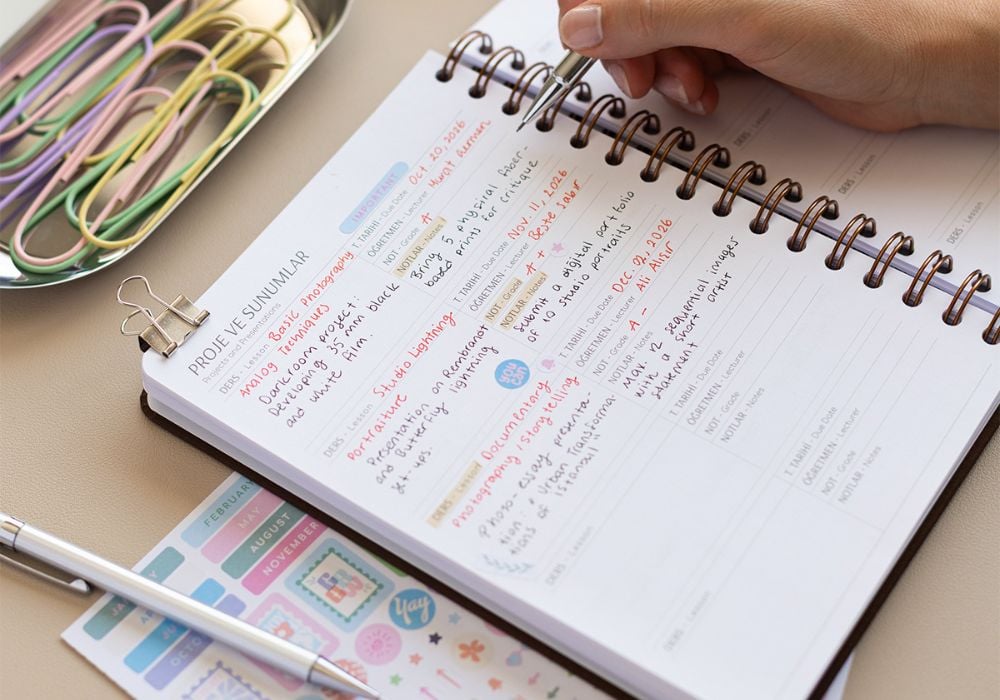 PROJE VE SUNUMLAR
Projects and Presentations
DERS - Lesson Basic Photography
Analog Techniques
Darkroom project:
Developing 35 mm black
and white film.
IMPORTANT
T. TARİHİ - Due Date Oct. 20, 2026
ÖĞRETMEN - Lecturer Murat Germen
NOT - Grade A
NOTLAR - Notes
Bring 5 physical fiber-
based prints for critique
DERS - Lesson Studio Lightning
Portraiture
Presentation on Rembrandt
and Butterfly lightning
set-ups.
T. TARİHİ - Due Date Nov. 11, 2026
ÖĞRETMEN - Lecturer Beste Sabır
NOT - Grade A +
NOTLAR - Notes
Submit a digital portfolio
of 10 studio portraits
you can
DERS - Lesson Documentary
Photography / storytelling
Photo-essay presenta-
tion: "Urban Transforma-
tions of istanbul"
T. TARİHİ - Due Date Dec. 02, 2026
ÖĞRETMEN - Lecturer Ali Alışır
NOT - Grade A -
NOTLAR - Notes
Max 12 sequential images
with a short artist
statement
DERS - Lesson
T. TARİHİ - Due Date
ÖĞRETMEN - Lecturer
NOT - Grade
NOTLAR - Notes
DERS - Lesson
T. TARİHİ - Due Date
ÖĞRETMEN - Lecturer
NOT - Grade
NOTLAR - Notes
DERS - Lesson
DERS - Lesson
FEBRUARY
MAY
AUGUST
NOVEMBER
Yay